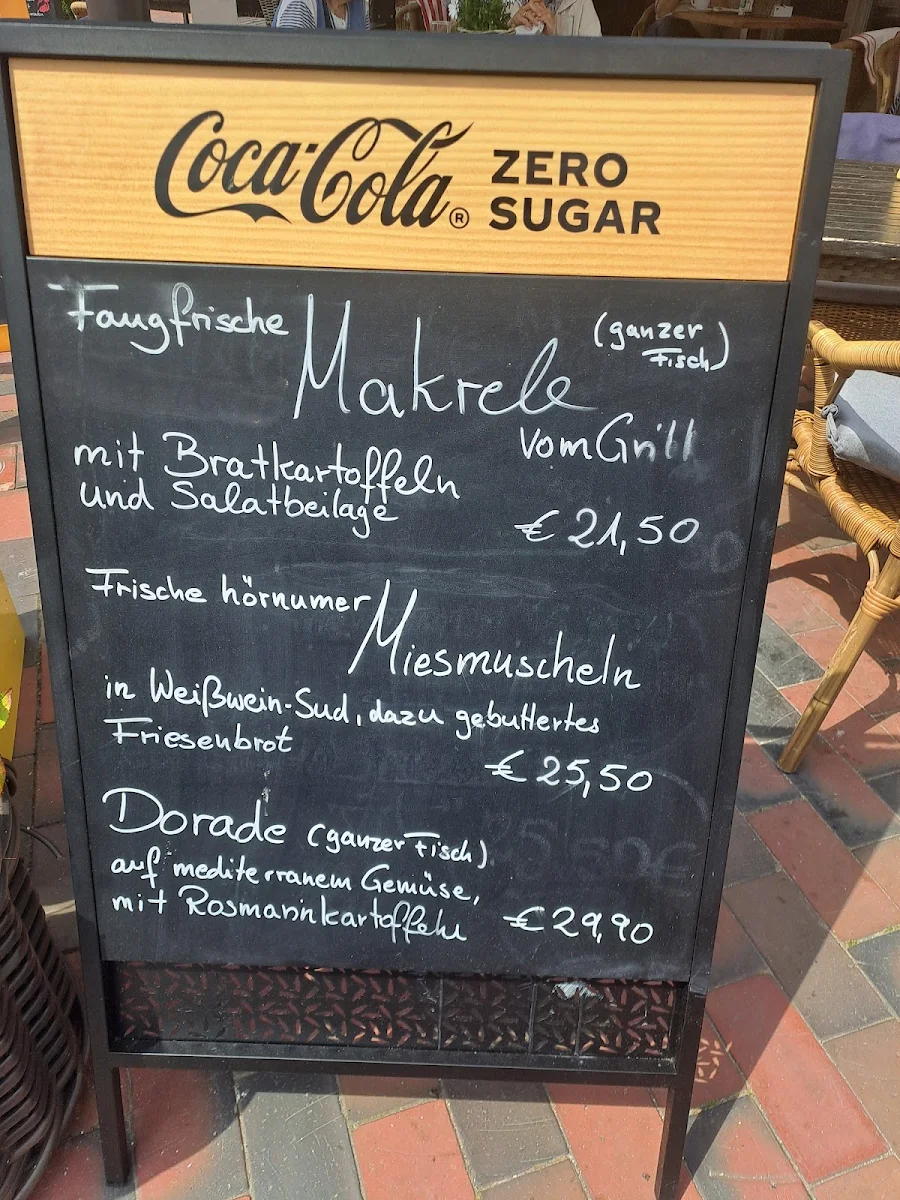 Coca-Cola® ZERO
SUGAR
Fangfrische Makrele (ganzer
Fisch)
vom Grill
mit Bratkartoffeln
und Salatbeilage
€ 21,50
Frische hörnumer Miesmuscheln
in Weißwein-Sud, dazu gebuttertes
Friesenbrot
€ 25,50
Dorade (ganzer Fisch)
auf mediterranem Gemüse,
mit Rosmarinkartoffeln € 29,90